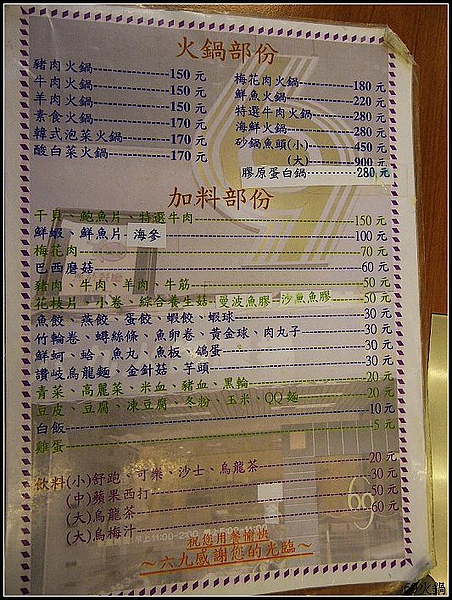 火鍋部份
豬肉火鍋 150 元
牛肉火鍋 150 元
羊肉火鍋 150 元
素食火鍋 170 元
韓式泡菜火鍋 170 元
酸白菜火鍋 170 元
梅花肉火鍋 180 元
鮮魚火鍋 220 元
特選牛肉火鍋 280 元
海鮮火鍋 280 元
砂鍋魚頭(小) 450 元
(大) 900 元
膠原蛋白鍋 280 元
加料部份
干貝、鮑魚片、特選牛肉 150 元
鮮蝦、鮮魚片、海參 100 元
梅花肉 70 元
巴西磨菇 60 元
豬肉、牛肉、羊肉、牛筋 50 元
花枝片、小卷、綜合養生菇、曼波魚膠、沙魚魚膠 50 元
魚餃、燕餃、蛋餃、蝦餃、蝦球 30 元
竹輪卷、蟳絲條、魚卵卷、黃金球、肉丸子 30 元
鮮蚵、蛤、魚丸、魚板、鴿蛋 30 元
讚岐烏龍麵、金針菇、芋頭 30 元
青菜、高麗菜、米血、豬血、黑輪 20 元
豆皮、豆腐、凍豆腐、冬粉、玉米、QQ麵 20 元
白飯 10 元
雞蛋 5 元
飲料(小)舒跑、可樂、沙士、烏龍茶 20 元
(中)蘋果西打 30 元
(大)烏龍茶 50 元
(大)烏梅汁 60 元
祝您用餐愉快
～六九感謝您的光臨～
69火鍋